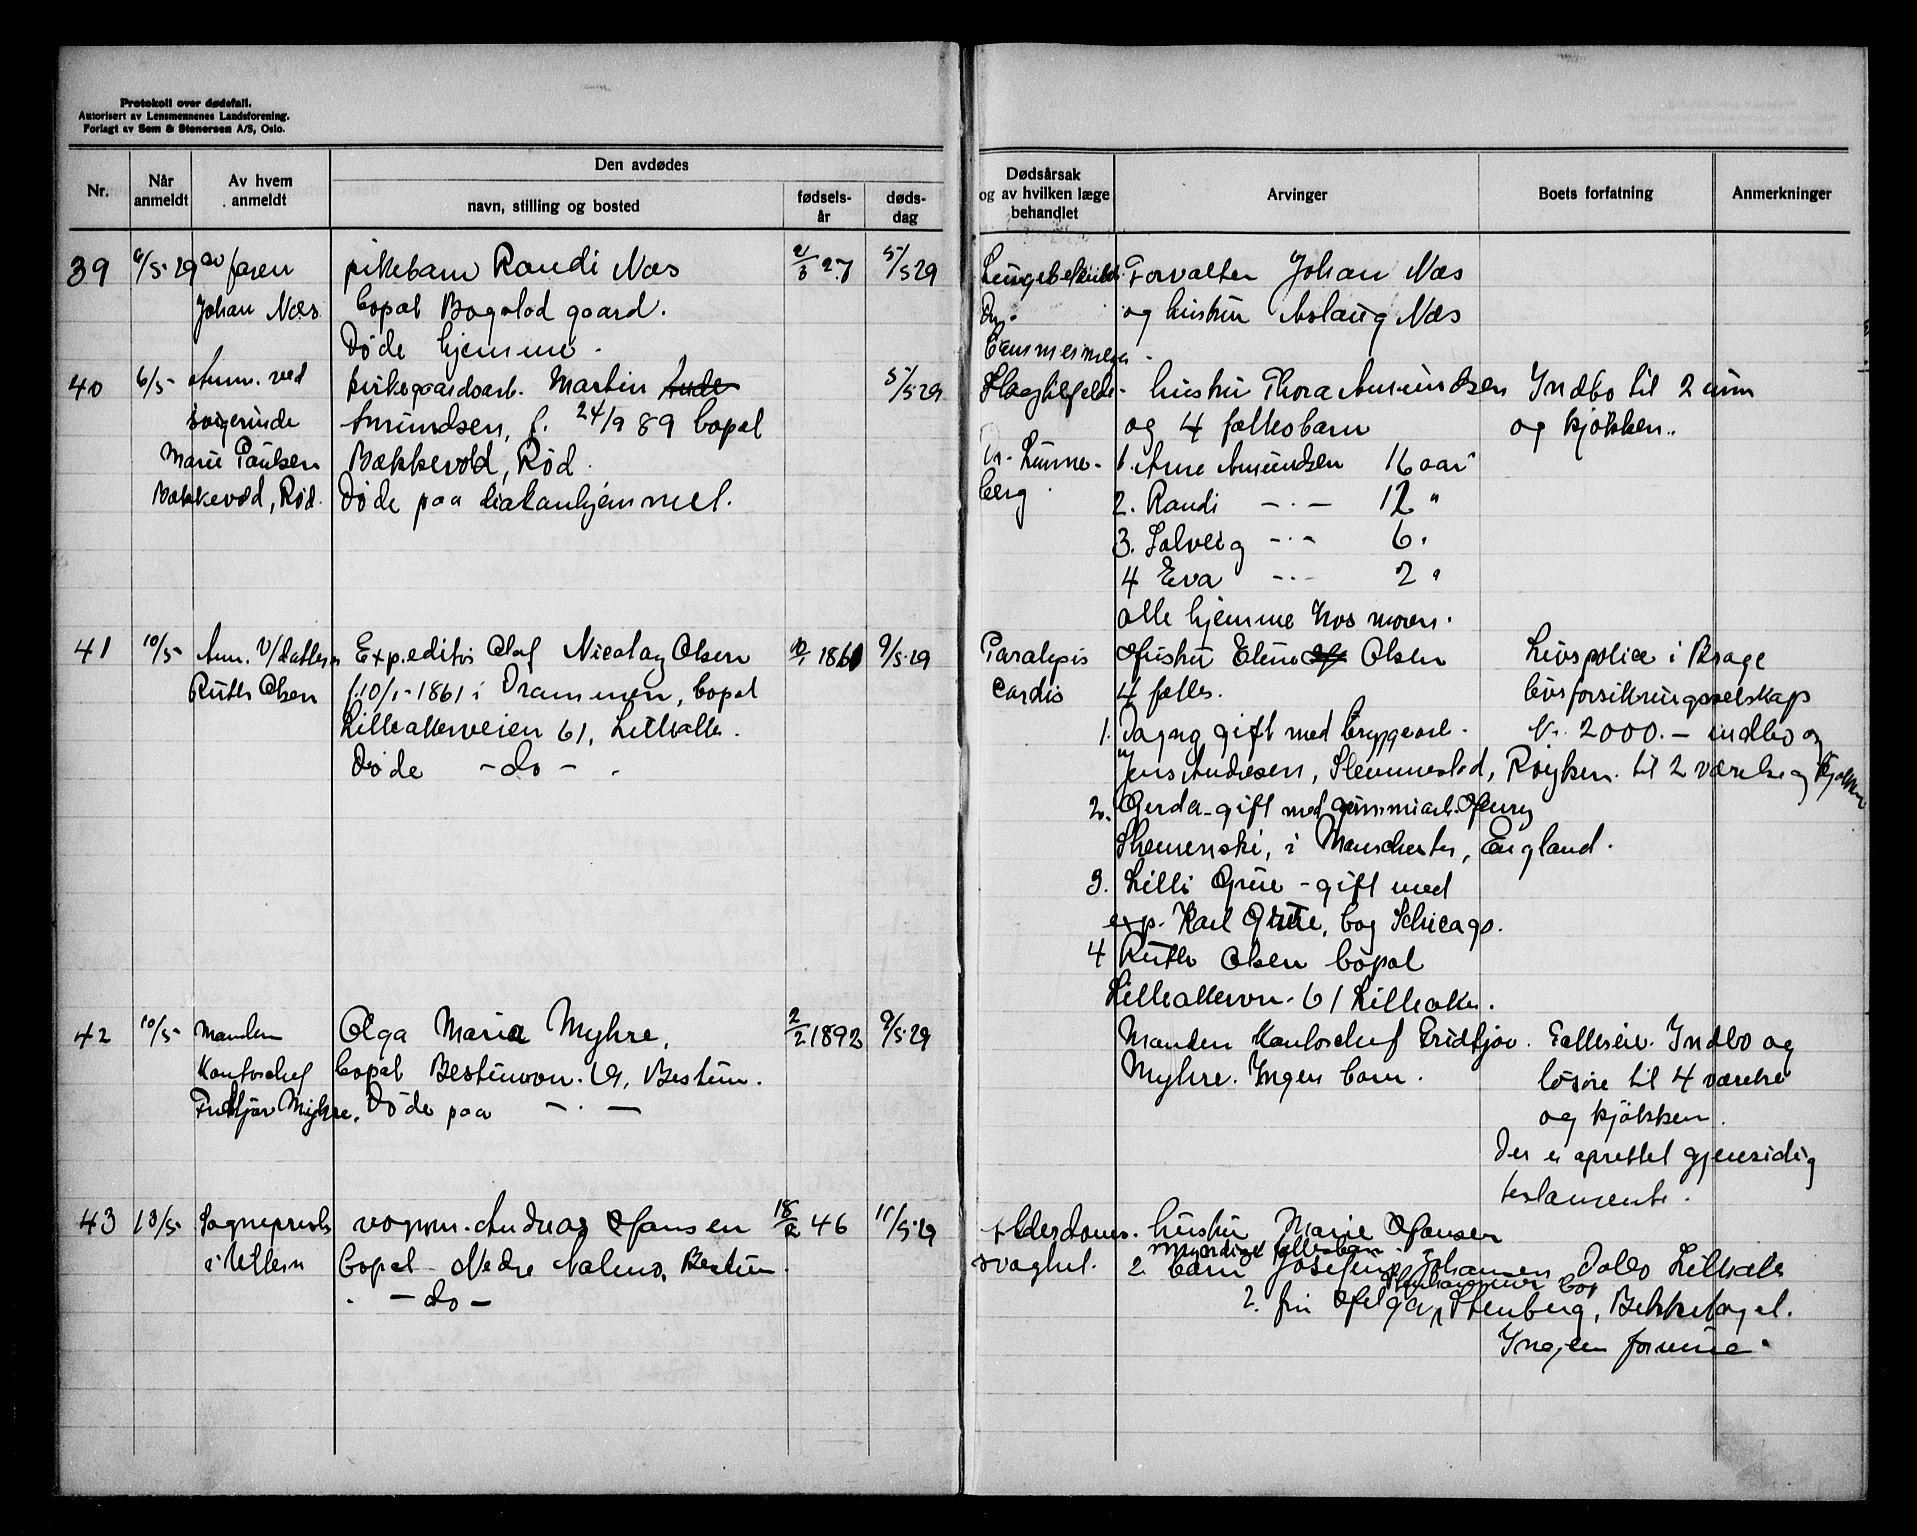 Protokoll over dødsfall.
Autorisert av Lensmennenes Landsforening.
Forlagt av Sem & Stenersen A/S, Oslo.
Nr.
Når anmeldt
Av hvem anmeldt
Den avdødes
navn, stilling og bosted
fødsels-år
døds-dag
Dødsårsak og av hvilken læge behandlet
Arvinger
Boets forfatning
Anmerkninger
39 6/5-29 av faren pikebarn Randi Næs 2/3 27 5/5 29
Johan Næs bopæl Bogstad gaard.
Døde hjemme.
Dr.
Forvalter Johan Næs
og hustru Aslaug Næs
40 6/5- Anm. ved kirkegaardsarb. Martin 5/5 29
svigerinde Amundsen, f. 24/9 89 bopæl
Marie Paulsen Bækkevold, Rød.
Bækkevold, Rød. Døde paa diakonhjemmet.
Slagtilfelde. hustru Thora Amundsen Indbo til 2 rum
og 4 fællesbarn og kjøkken.
Dr. Lunne- 1. Arne Amundsen 16 aar
berg. 2. Randi -"- 12 "
3. Solveig -"- 6 "
4 Eva -"- 2 "
alle hjemme hos moren.
41 10/5- Anm. v/datteren Expeditør Olaf Nicolay Olsen 10/1 1861 9/5-29
Ruth Olsen f. 10/1-1861 i Drammen, bopæl
Lilleakerveien 61, Lilleaker.
Døde -do-.
Paralysis Hustru Eline Olsen Livspolice i Brage
cordis 4 fælles. livsforsikringsselskap
1. Dagny gift med bryggearb. Kr. 2000.- indbo og
Jens Andresen, Slemmestad, Røyken. til 2 værelse og kjøkken
2. Gerda gift med gummiarb. Henry
Shemenski, i Manschester, England.
3. Lilli Grue - gift med
exp. Karl Grue, bog Schicago.
4 Ruth Olsen bopæl
Lilleakervn. 61 Lilleaker.
42 10/5- Manden Olga Maria Myhre, 2/2 1892 9/5-29
Kontorchef bopæl Bestumvn. 19, Bestum.
Fridtjov Myhre. Døde paa -"-
Manden Kontorchef Fridtjov Fælleseie. Indbo og
Myhre. Ingen barn. løsøre til 4 værelse
og kjøkken.
Der er oprettet gjensidig
testamente.
43 13/5- Sogneprest vognm. Andreas Hansen 18/2 46 11/5-29
i Ullern bopæl Nedre Bestum.
-do-
Alderdoms- hustru Marie Hansen
svaghet. 2 myndige fællesbarn Johansen Lilleaker
2. fru Helga Stenberg, Bekkelaget.
Ingen formue.